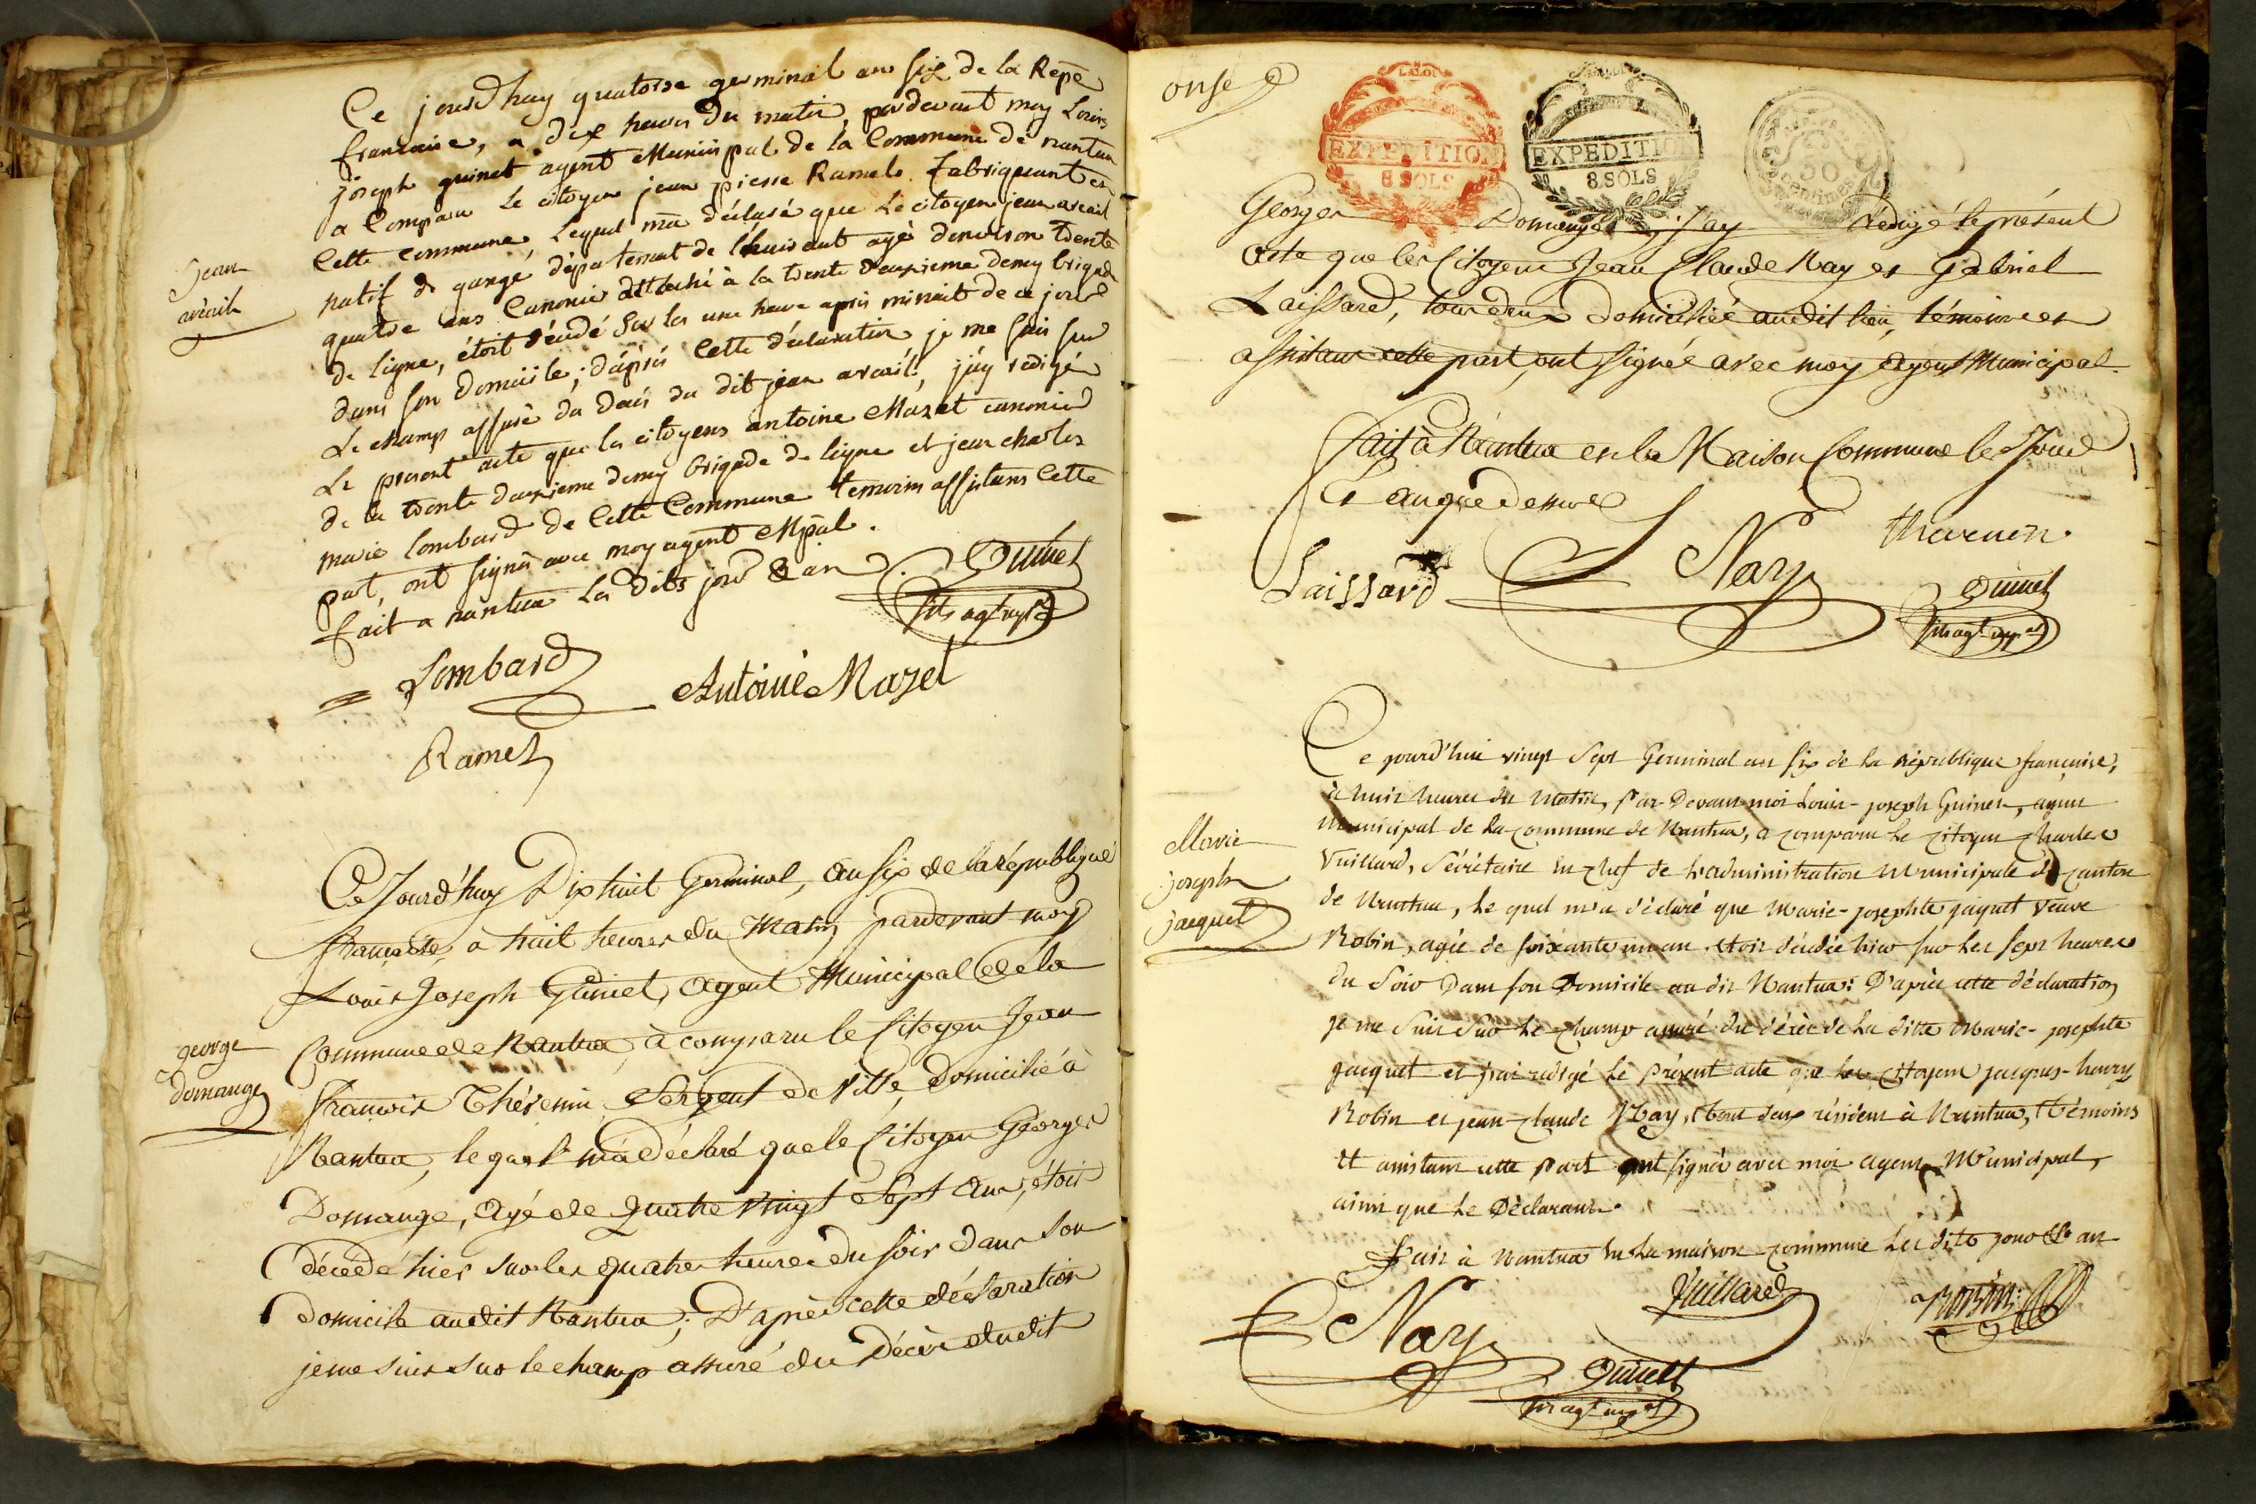 Ce jourdhuy quatorse germinal an six de la Repe
francaise, a dix heures du matin, pardevant moy Louis
joseph guinet agent Municipal de la Commune de nantua
a Comparu le citoyen jean pierre Ramel fabriquant en
Cette commune, Lequel ma déclaré que Le citoyen jean
natif de gange département de age denviron trente
quatre ans Canonier attaché à la trente deuxieme demy brigade
de ligne, étoit décédé sur les une heure après minuit de ce jour
dans son domicile; dáprès Cette déclaration je me suis sur
Le champ assuré du decés du dit jean j'ay redigé
Le present acte que les citoyens antoine Mazet canonier
de la trente deuxieme demy brigade de ligne et jean charles
marie lombard de Cette Commune temoins assistans Cette
part, ont signés avec moy agent Mpal.
fait a nantua les dits jour & an
Guinet
fils agt mpal
Lombard
Antoine Mazet
Ramel
Jean
george
domange
Ce Jourd'huy Dix huit Germinal, an six de la république
française, a huit heures du Matin, pardevant moy
Louis Joseph Guinet, Agent Municipal de la
Commune de Nantua, à comparu le Citoyen Jean
françois Thévenin Sergent de Ville, domicilié à
Nantua, lequel m'a Déclaré que le Citoyen Georges
Domange, agé de Quatre Vingt Sept ans, étoit
décédé hier sur les quatre heures du soir dans son
Domicile audit Nantua; D'après cette déclaration
je me suis sur le champ assuré du Décès dudit
onse
LA LOI
EXPEDITION
8 SOLS
EXPEDITION
8 SOLS
50
centimes
Georges Domange, j'ay rédigé le présent
Acte que les Citoyens Jean Claude Nay et Gabriel
Laissard, tous deux domiciliés audit lieu, témoins et
assistans cette part, ont signé avec moy Agent Municipal.
fait à Nantua en la Maison Commune les Jour
et an que dessus
Laissard
Nay
thevenin.
Guinet
fils agt mpal
Marie
joseph
jacquet
Ce jourd'hui vingt Sept Germinal an six de la république françoise,
à huit heures du matin, Par-Devant moi Louis-joseph Guinet, agent
Municipal de la commune de Nantua, a comparu le citoyen charles
Vuillard, Sécrétaire en chef de L'administration Municipale du canton
de Nantua, le quel m'a déclaré que Marie-josephte jaquet Veuve
Robin, agée de soixante un an étoit décédée hier sur les sept heures
du Soir Dans son Domicile au dit Nantua: D'après cette déclaration
je me suis sur le-champ assuré du décès de La ditte Marie-josephte
jacquet et j'ai rédigé le présent acte que les citoyens jacques-henry
Robin et jean-claude Nay, tout deux résident à Nantua, Témoins
et assistans cette Part ont signés avec moi agent Municipal,
ainsi que le Déclarant.
Fait à Nantua en La maison commune les dits jour & an
Nay
Vuillard
Robin
Guinet
fils agt mpal